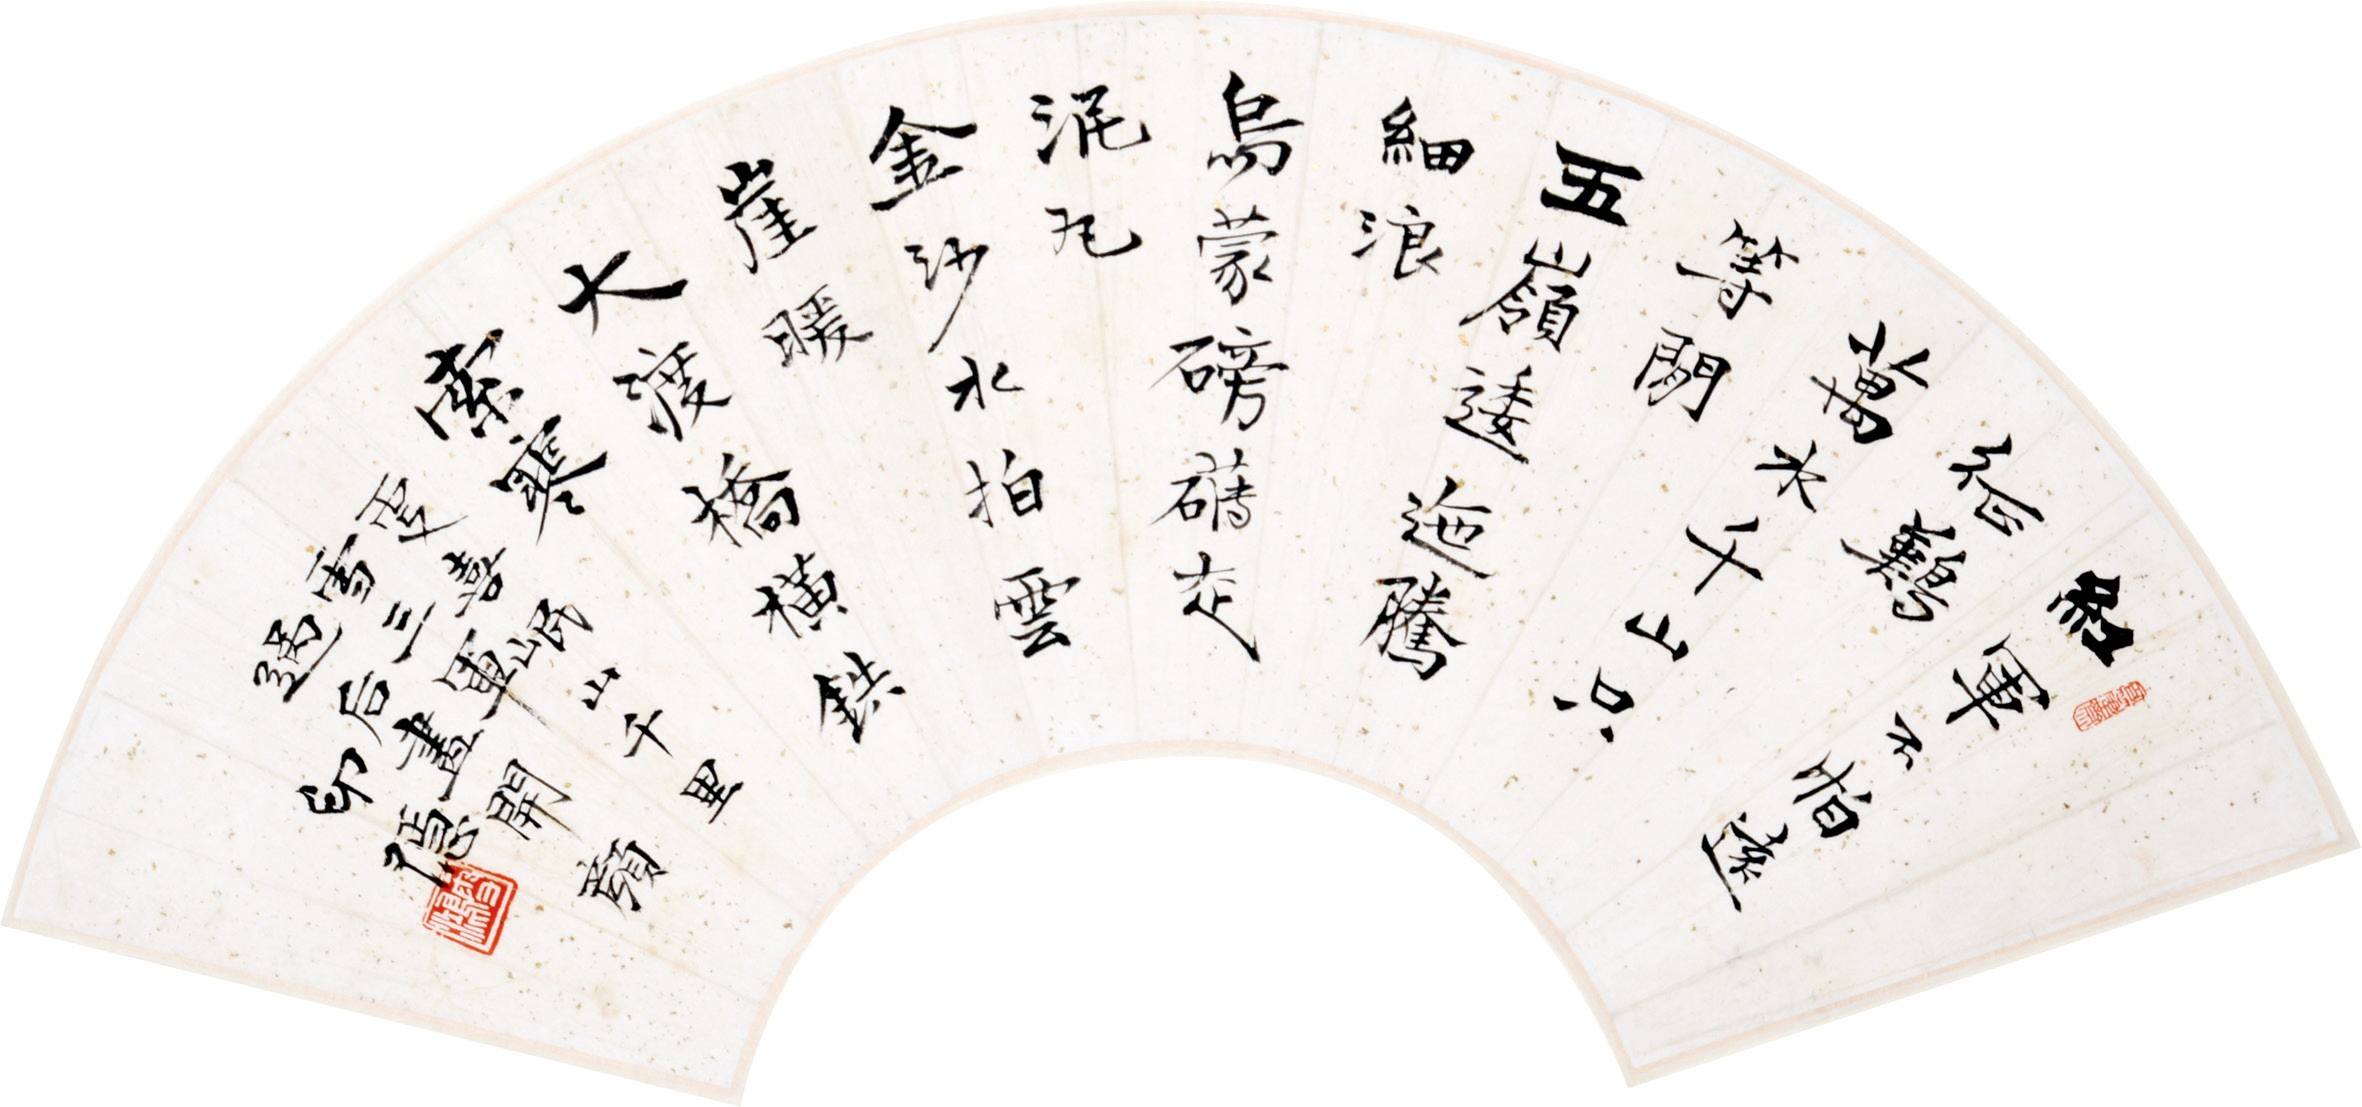 紅軍不怕遠
征難
萬水千山只
等閑
五嶺逶迤騰
細浪
烏蒙磅礴走
泥丸
金沙水拍雲
崖暖
大渡橋橫鉄
索寒
更喜岷山千里
雪三軍
過后盡開顏